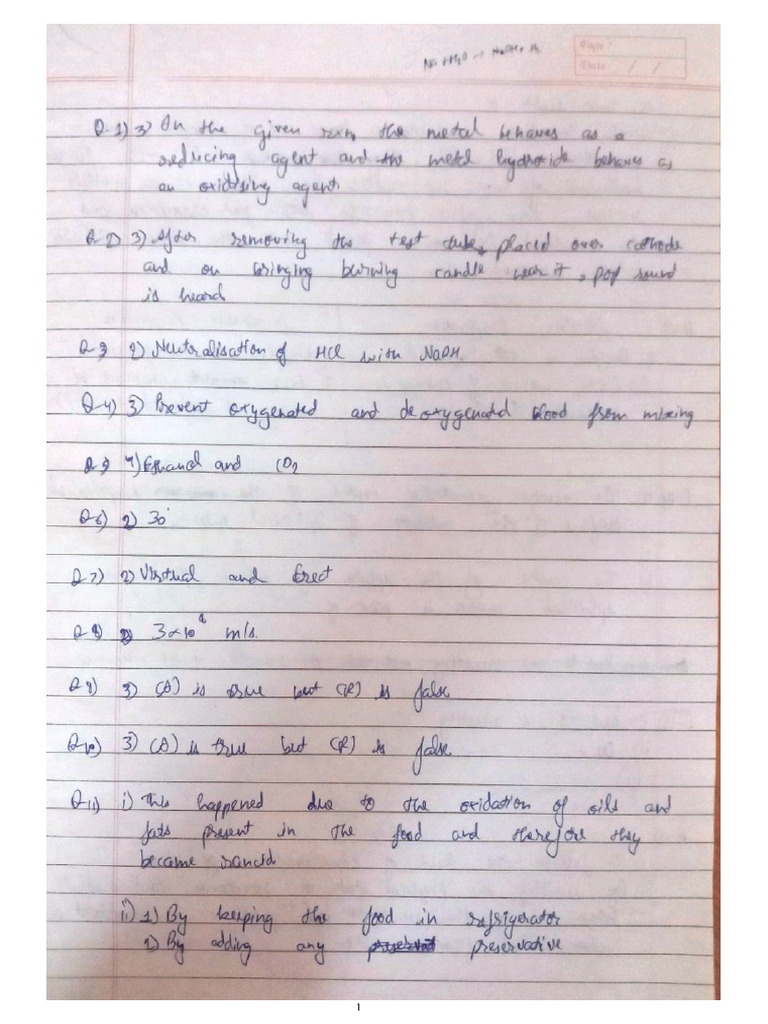 Na + H2O → NaOH + H2
Date / /
Q-1) 3) In the given rxn, the metal behaves as a
reducing agent and the metal hydroxide behaves as
an oxidising agent
Q 2) 3) After removing the test tube, placed over cathode
and on bringing burning candle near it, pop sound
is heard
Q-3) 2) Neutralisation of HCl with NaOH.
Q-4) 3) Prevent oxygenated and deoxygenated blood from mixing
Q-5) 4) Ethanol and CO2
Q-6) 2) 30°
Q-7) 2) Virtual and Erect
Q-8) 2) 3×10⁸ m/s.
Q-9) 3) (A) is true but (R) is false
Q-10) 3) (A) is true but (R) is false
Q-11) i) This happened due to the oxidation of oils and
fats present in the food and therefore they
became rancid
ii) 1) By keeping the food in refrigerator
2) By adding any preservative
1